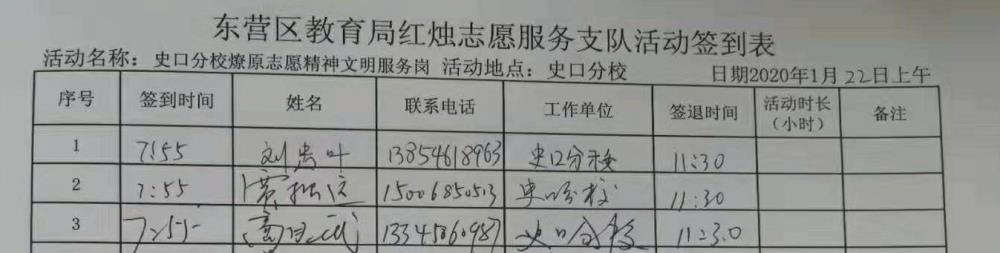 东营区教育局红烛志愿服务支队活动签到表
活动名称：史口分校燎原志愿精神文明服务岗 活动地点：史口分校 日期2020年1月22日上午
序号 签到时间 姓名 联系电话 工作单位 签退时间 活动时长（小时） 备注
1 7:55 刘贵叶 13854618963 史口分校 11:30
2 7:55 15006850513 史口分校 11:30
3 7:55 13345060987 史口分校 11:30